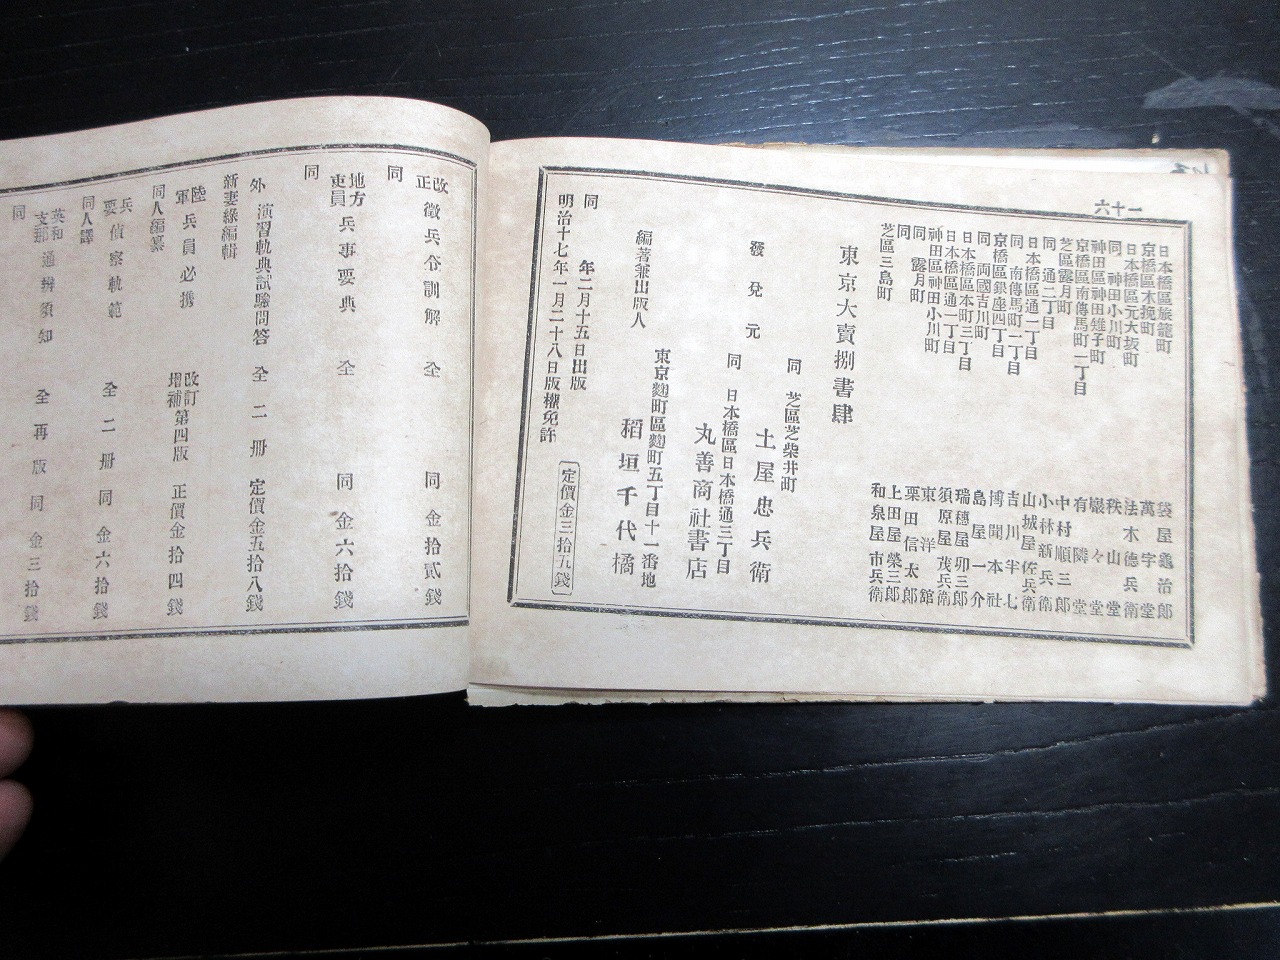 一十六
日本橋區旅籠町 袋屋龜治郎
京橋區木挽町 萬字堂
日本橋區元大坂町 法木德兵衛
同 神田小川町 秩山堂
神田區神田雉子町 巖々堂
京橋區南傳馬町二丁目 有隣堂
芝區露月町 中村順三郎
同 通二丁目 小林新兵衛
日本橋區通二丁目 山城屋佐兵衛
同 南傳馬町一丁目 吉川半七
京橋區銀座四丁目 博聞本社
同 両國吉川町 島屋一介
日本橋區本町三丁目 瑞穗屋卯三郎
日本橋區通一丁目 須原屋茂兵衛
神田區神田小川町 東洋館
同 露月町 栗田信太郎
同 上田屋榮三郎
芝區三島町 和泉屋市兵衛
東京大賣捌書肆
同 芝區芝柴井町
土屋忠兵衛
發兌元
同 日本橋區日本橋通三丁目
丸善商社書店
東京麴町區麴町五丁目十一番地
編著兼出版人 稻垣千代橘
同 年二月十五日出版
明治十七年一月二十八日版權免許 定價金三拾五錢
改正 徵兵令訓解 全 同 金拾貳錢
同
地方吏員 兵事要典 全 同 金六拾錢
同
外 演習軌典試驗問答 全二册 定價金五拾八錢
新妻綠編輯
陸軍 兵員必携 改訂增補第四版 正價金拾四錢
同人編纂
兵要 偵察軌範 全二册 同 金六拾錢
同人譯
英和支那 通辨須知 全 再版 同 金三拾錢
同